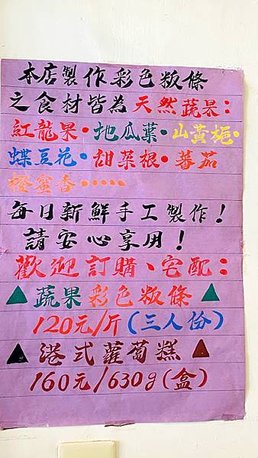 本店製作彩色粄條
之食材皆為天然蔬果：
紅龍果•地瓜葉•山黃梔•
蝶豆花•甜菜根•蕃茄
橙蜜香•••••
每日新鮮手工製作！
請安心享用！
歡迎訂購、宅配：
▲蔬果彩色粄條▲
120元/斤(三人份)
▲港式蘿蔔糕▲
160元/630g(盒)